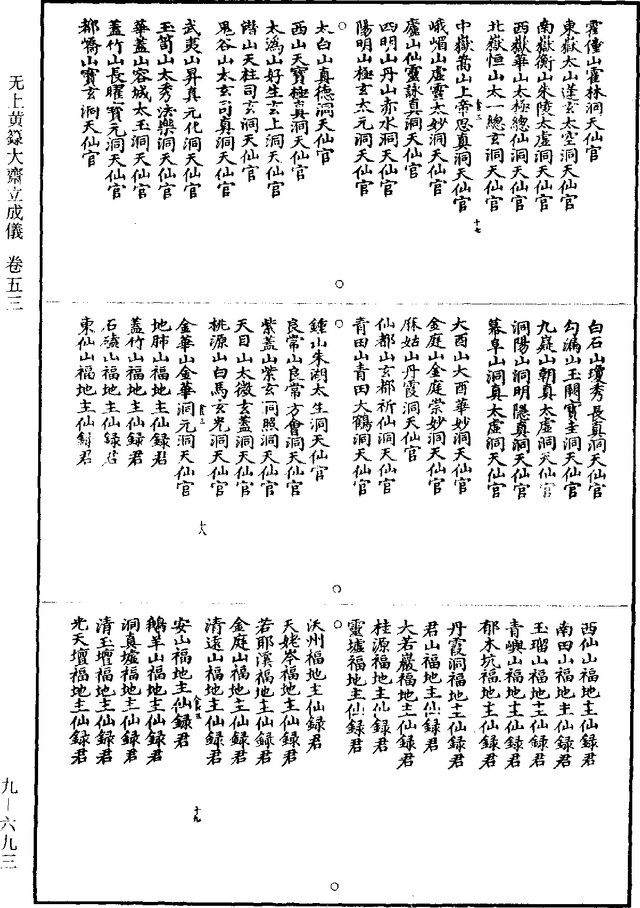 霍僮山霍林洞天仙官
東嶽太山蓬玄太空洞天仙官
南嶽衡山朱陵太虛洞天仙官
西嶽華山太極總仙洞天仙官
北嶽恒山太一總玄洞天仙官
中嶽嵩山上帝思真洞天仙官
峨嵋山虛靈太妙洞天仙官
廬山仙靈詠真洞天仙官
四明山丹山赤水洞天仙官
陽明山極玄太元洞天仙官
太白山真德洞天仙官
西山天寶極真洞天仙官
太溈山好生玄上洞天仙官
潛山天柱司玄洞天仙官
鬼谷山太玄司真洞天仙官
武夷山昇真元化洞天仙官
玉笥山太秀法樂洞天仙官
華蓋山容城太玉洞天仙官
蓋竹山長曜寶元洞天仙官
都嶠山寶玄洞天仙官
十七
白石山瓊秀長真洞天仙官
勾漏山玉闕寶圭洞天仙官
九嶷山朝真太虛洞天仙官
洞陽山洞明隱真洞天仙官
幕阜山洞真太虛洞天仙官
大酉山大酉華妙洞天仙官
金庭山金庭崇妙洞天仙官
麻姑山丹霞洞天仙官
仙都山玄都祈仙洞天仙官
青田山青田大鶴洞天仙官
鍾山朱湖太生洞天仙官
良常山良常方會洞天仙官
紫蓋山紫玄洞照洞天仙官
天目山太微玄蓋洞天仙官
桃源山白馬玄光洞天仙官
金華山金華洞元洞天仙官
地肺山福地主仙錄君
蓋竹山福地主仙錄君
石磕山福地主仙錄君
東仙山福地主仙錄君
十八
西仙山福地主仙錄君
南田山福地主仙錄君
玉瑠山福地主仙錄君
青嶼山福地主仙錄君
郁木坑福地主仙錄君
丹霞洞福地主仙錄君
君山福地主仙錄君
大若巖福地主仙錄君
桂源福地主仙錄君
靈墟福地主仙錄君
沃州福地主仙錄君
天姥岑福地主仙錄君
若耶溪福地主仙錄君
金庭山福地主仙錄君
清遠山福地主仙錄君
安山福地主仙錄君
鵝羊山福地主仙錄君
洞真墟福地主仙錄君
清玉壇福地主仙錄君
光天壇福地主仙錄君
十九
无上黄籙大齋立成儀 卷五三
九-六九三